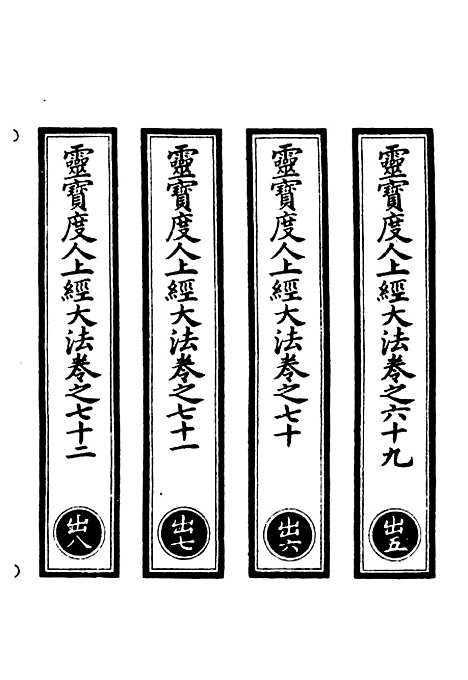 靈寶度人上經大法卷之六十九
出五
靈寶度人上經大法卷之七十
出六
靈寶度人上經大法卷之七十一
出七
靈寶度人上經大法卷之七十二
出八